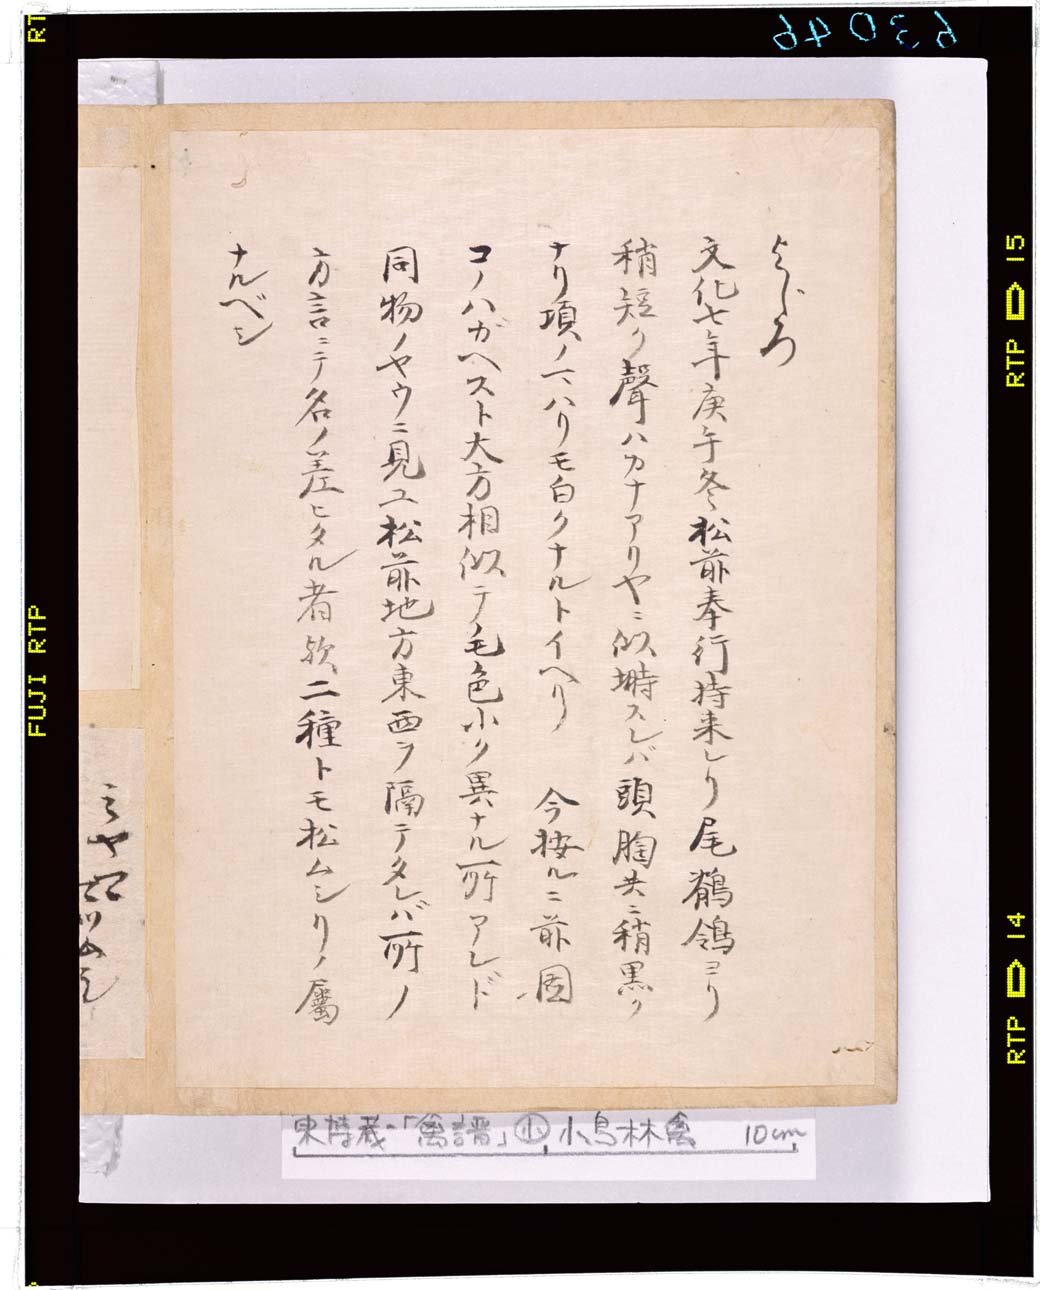 よしろ
文化七年庚午冬松前奉行持来レリ尾鶺鴒ヨリ
稍短ク聲ハカナアリヤニ似塒スレバ頭胸共ニ稍黒ク
ナリ項ノマハリモ白クナルトイヘリ 今按ルニ前圖
コノハガヘスト大方相似テ毛色小ク異ナル所アレド
同物ノヤウニ見ユ松前地方東西ヲ隔テタレバ所ノ
方言ニテ名ノ差ヒタル者歟二種トモ松ムシリノ屬
ナルベシ
東博蔵「禽譜」小 小鳥林禽 10cm
63046
RTP 15
RTP 14
FUJI RTP
RT